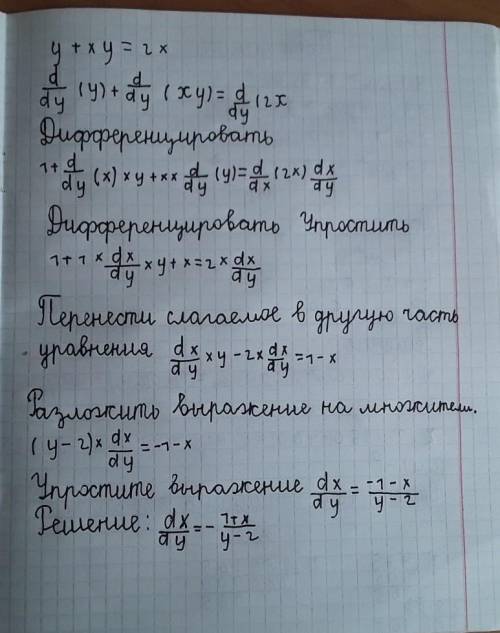 y + x y = 2 x
d/dy (y) + d/dy (xy) = d/dy (2x
Дифференцировать
1 + d/dy (x) × y + x × d/dy (y) = d/dx (2x) dx/dy
Дифференцировать Упростить
1 + 1 × dx/dy × y + x = 2 × dx/dy
Перенести слагаемое в другую часть
уравнения dx/dy × y - 2 × dx/dy = 1 - x
Разложить выражение на множители.
(y - 2) × dx/dy = -1 - x
Упростите выражение dx/dy = -1 - x/y - 2
Решение: dx/dy = - 1 + x/y - 2